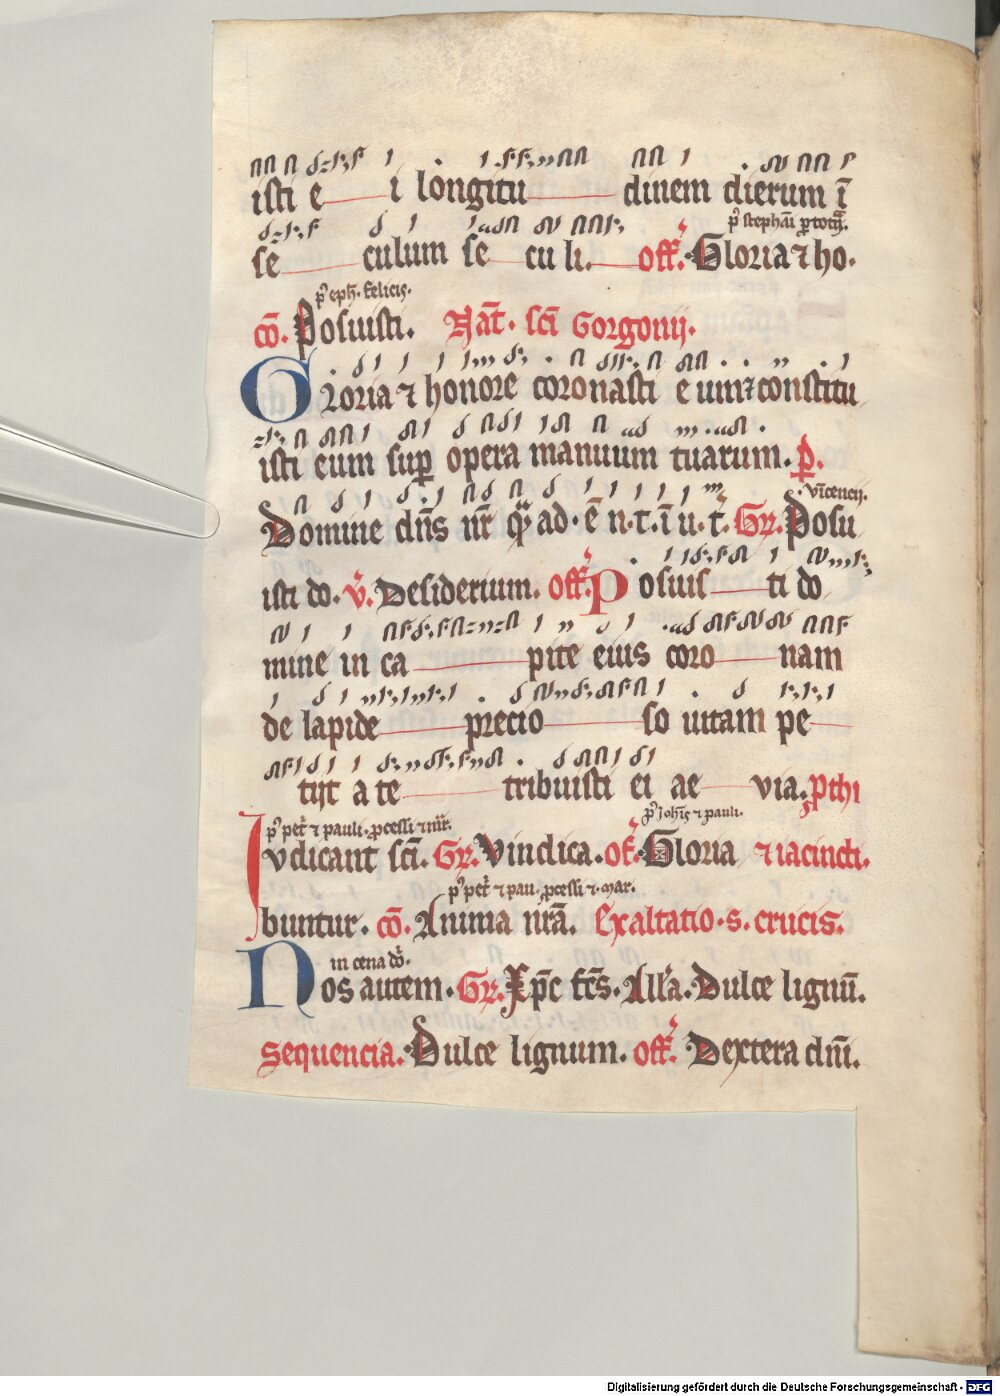 isti e i longitu dinem dierum ī
p᷒ stephāi ꝓtoṁ.
se culum se cu li. off̄. Gloria ⁊ ho.
p᷒ eph̄. felicis.
cō. Posuisti. Nat̄. sc̄i Gorgonij.
Gloria ⁊ honore coronasti e um ⁊ constitu
isti eum suꝑ opera manuum tuarum. p̄.
viīcencij.
Domine dn̄s nr̄ ad. ē n. t. ī u. t. Gr. Posu
isti do. v̄. Desiderium. off̄. Posuis ti do
mine in ca pite eius coro nam
de lapide precio so uitam pe
tijt a te tribuisti ei ae via. ꝓthi
p᷒ pet̄ ⁊ pauli. ꝓcessi ⁊ mr̄. p᷒ Joh̄is ⁊ pauli.
Iudicant sc̄i. Gr. Vindica. of̄. Gloria ⁊ iacincti.
p᷒ pet̄ ⁊ pau. ꝓcessi ⁊ mar.
buntur. cō. Anima nr̄a. Exaltatio. s. crucis.
in cena do̅.
Nos autem. Gr. Xp̄c fc̄s. All'a. Dulce lignū.
Sequencia. Dulce lignum. off̄. Dextera dn̄i.
Digitalisierung gefördert durch die Deutsche Forschungsgemeinschaft - DFG